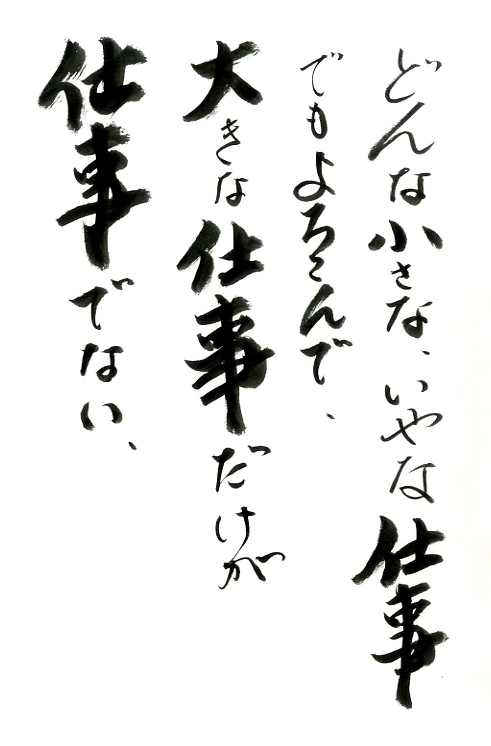 どんな小さな、いやな仕事
でもよろこんで、
大きな仕事だけが
仕事でない、